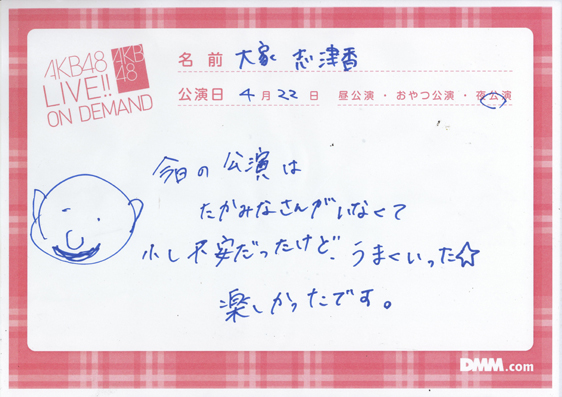 AKB48
LIVE!!
ON DEMAND
AKB
48
名前 大家 志津香
公演日 4月22日 昼公演・おやつ公演・夜公演
今日の公演は
たかみなさんがいなくて
少し不安だったけど、うまくいった☆
楽しかったです。
DMM.com